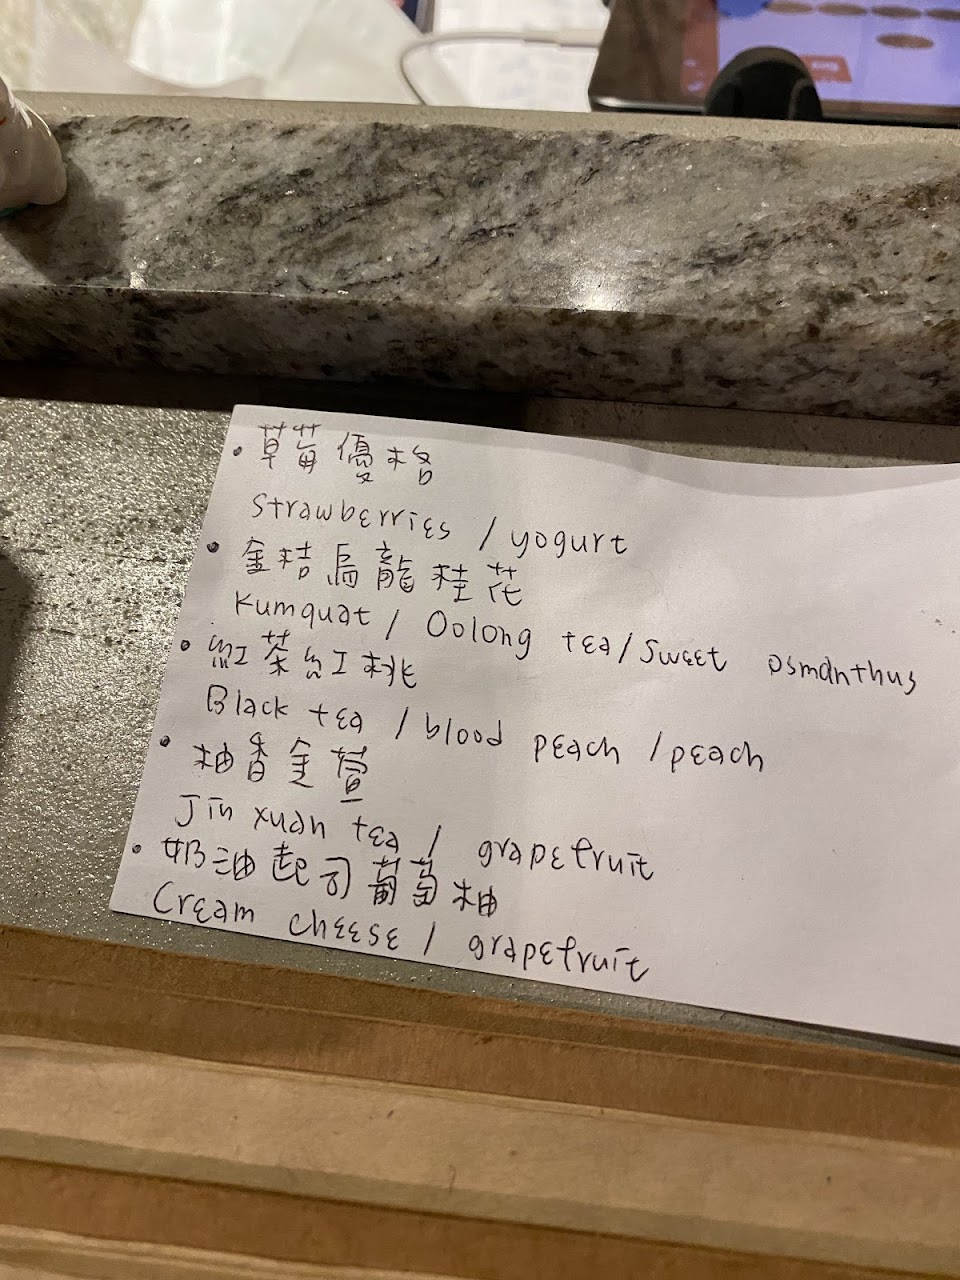 • 草莓優格
Strawberries / yogurt
• 金桔烏龍桂花
Kumquat / Oolong tea/Sweet osmanthus
• 紅茶紅桃
Black tea / blood peach / peach
• 柚香金萱
Jin xuan tea / grapefruit
• 奶油起司葡萄柚
Cream cheese / grapefruit